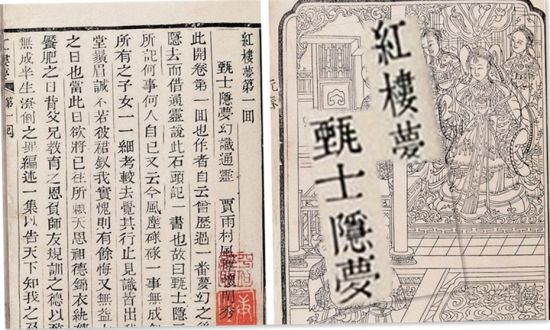 紅樓夢第一回
甄士隱夢幻識通靈 賈雨村風塵懷閨秀
此開卷第一回也作者自云曾歷過一番夢幻之後
隱去而借通靈說此石頭記一書也故曰甄士隱云
所記何事何人自己又云今風塵碌碌一事無成
所有之子女一一細考較去覺其行止見識皆出我
堂鬚眉誠不若彼裙釵我實愧則有餘悔又無益
之日也當此日欲將已往所賴天恩祖德錦衣紈袴
饜肥之日背父兄教育之恩負師友規訓之德以致
無成半生潦倒之罪編述一集以告天下知我之
紅樓夢 第一回
元春
紅樓夢
甄士隱夢